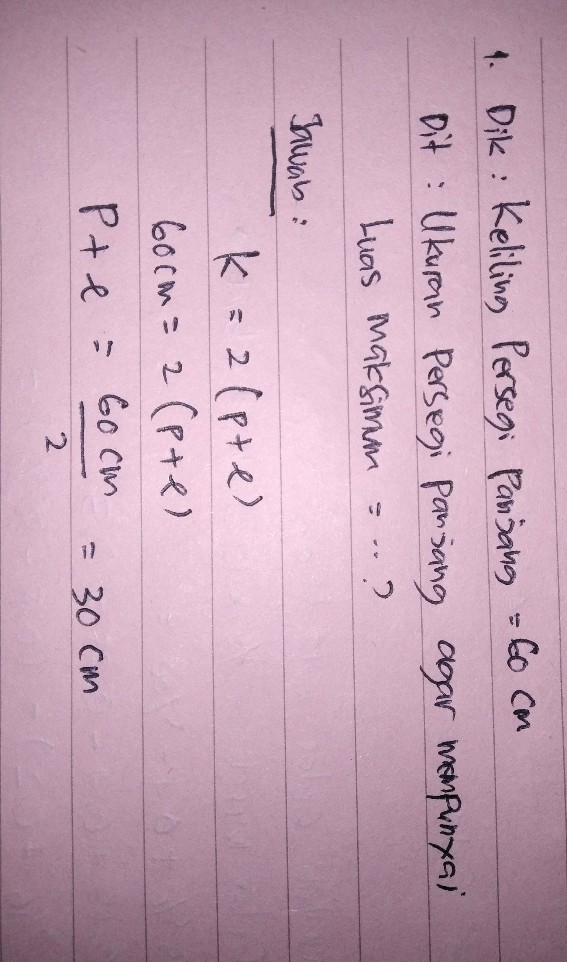 1. Dik : Keliling Persegi Panjang = 60 cm
Dit : Ukuran Persegi Panjang agar mempunyai
Luas maksimum = ..?
Jawab :
k = 2 (p+l)
60cm = 2 (p+l)
P+l = 60 cm / 2 = 30 cm